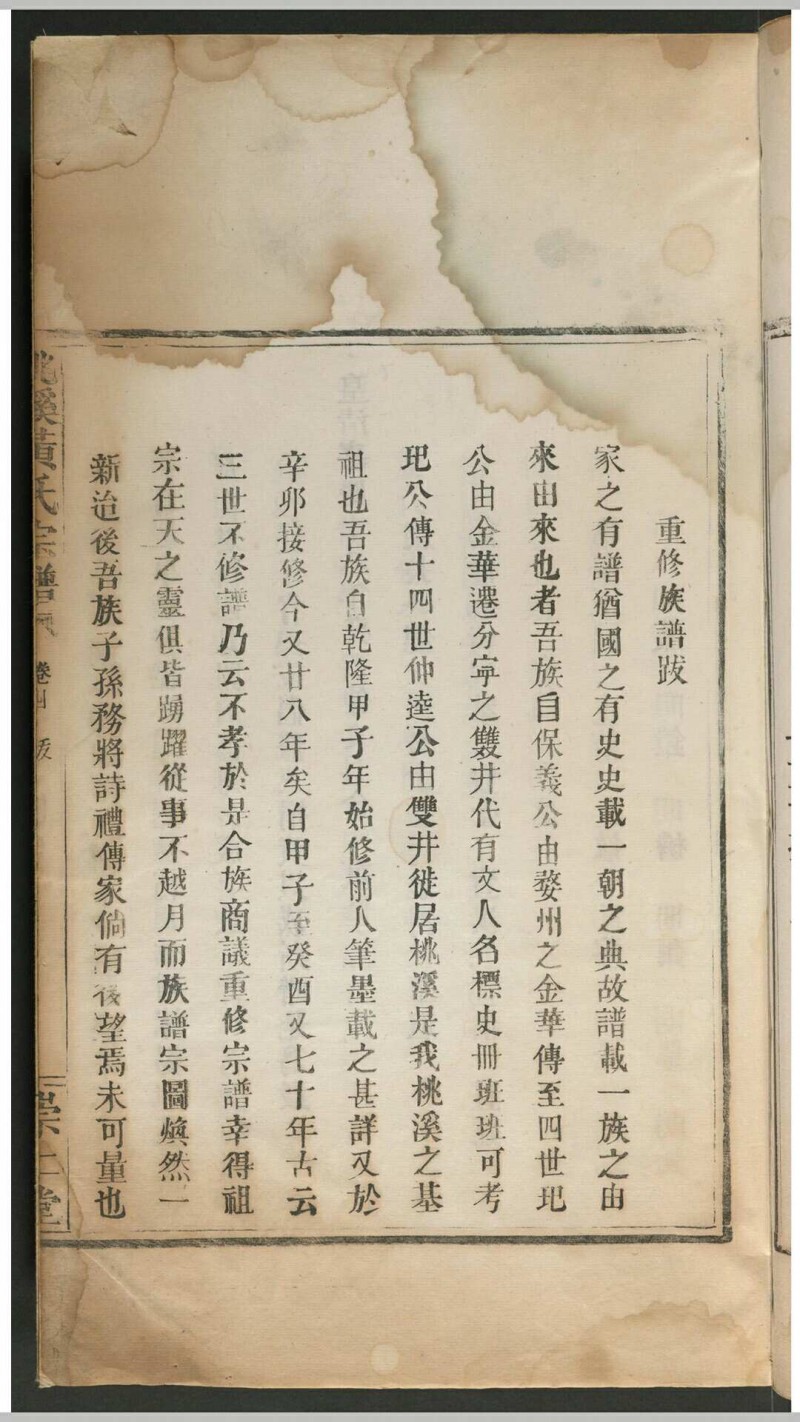 重修族譜跋
家之有譜猶國之有史史載一朝之典故譜載一族之由
來由來也者吾族自保義公由婺州之金華傳至四世玘
公由金華遷分寧之雙井代有文人名標史冊班班可考
玘公傳十四世仲逵公由雙井徙居桃溪是我桃溪之基
祖也吾族自乾隆甲子年始修前人筆墨載之甚詳又於
辛卯接修今又廿八年矣自甲子至癸酉又七十年古云
三世不修譜乃云不孝於是合族商議重修宗譜幸得祖
宗在天之靈俱皆踴躍從事不越月而族譜宗圖煥然一
新迨後吾族子孫務將詩禮傳家倘有後望焉未可量也
桃溪黃氏宗譜 卷 跋 堂